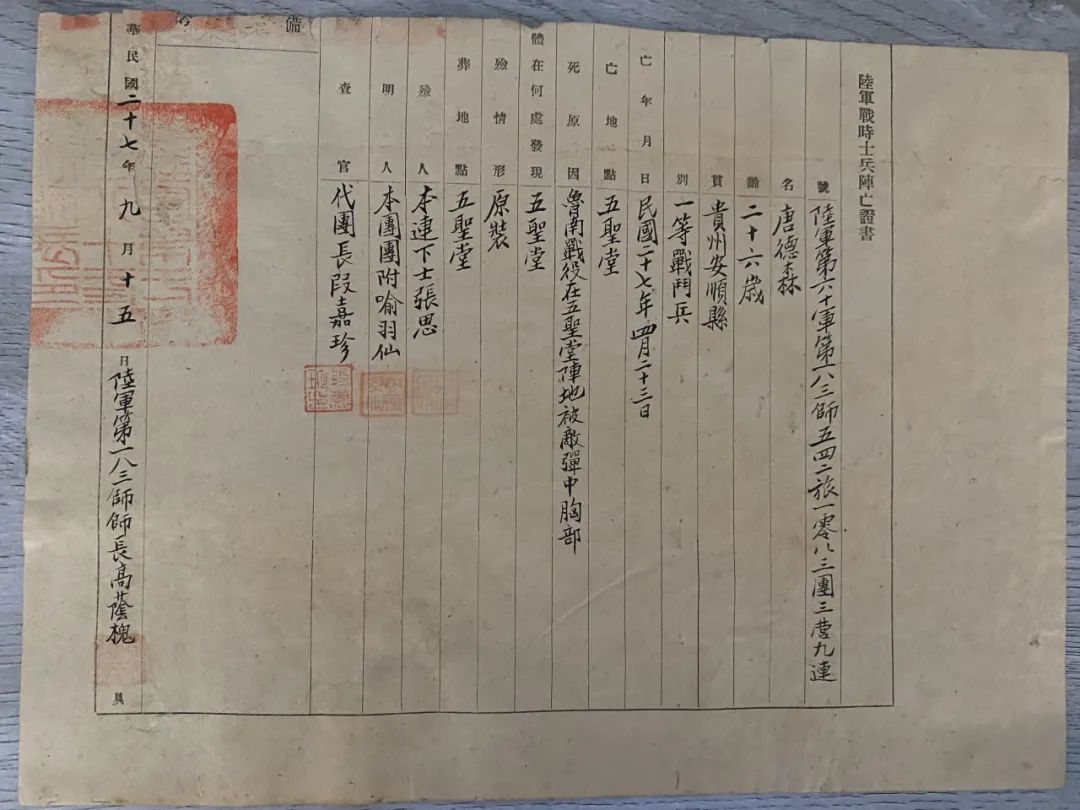 陸軍戰時士兵陣亡證書
號 陸軍第六十軍第一八三師五四二旅一零八三團三營九連
名 唐德森
齡 二十六歲
貫 貴州安順縣
別 一等戰鬥兵
亡年月日 民國二十七年四月二十三日
亡地點 五聖堂
死原因 魯南戰役在五聖堂陣地被敵彈中胸部
體在何處發現 五聖堂
殮情形 原裝
葬地點 五聖堂
殮人 本連下士張思
明人 本團團附喻羽仙
查官 代團長段嘉珍
備考
華民國二十七年九月十五日陸軍第一八三師師長高蔭槐 具